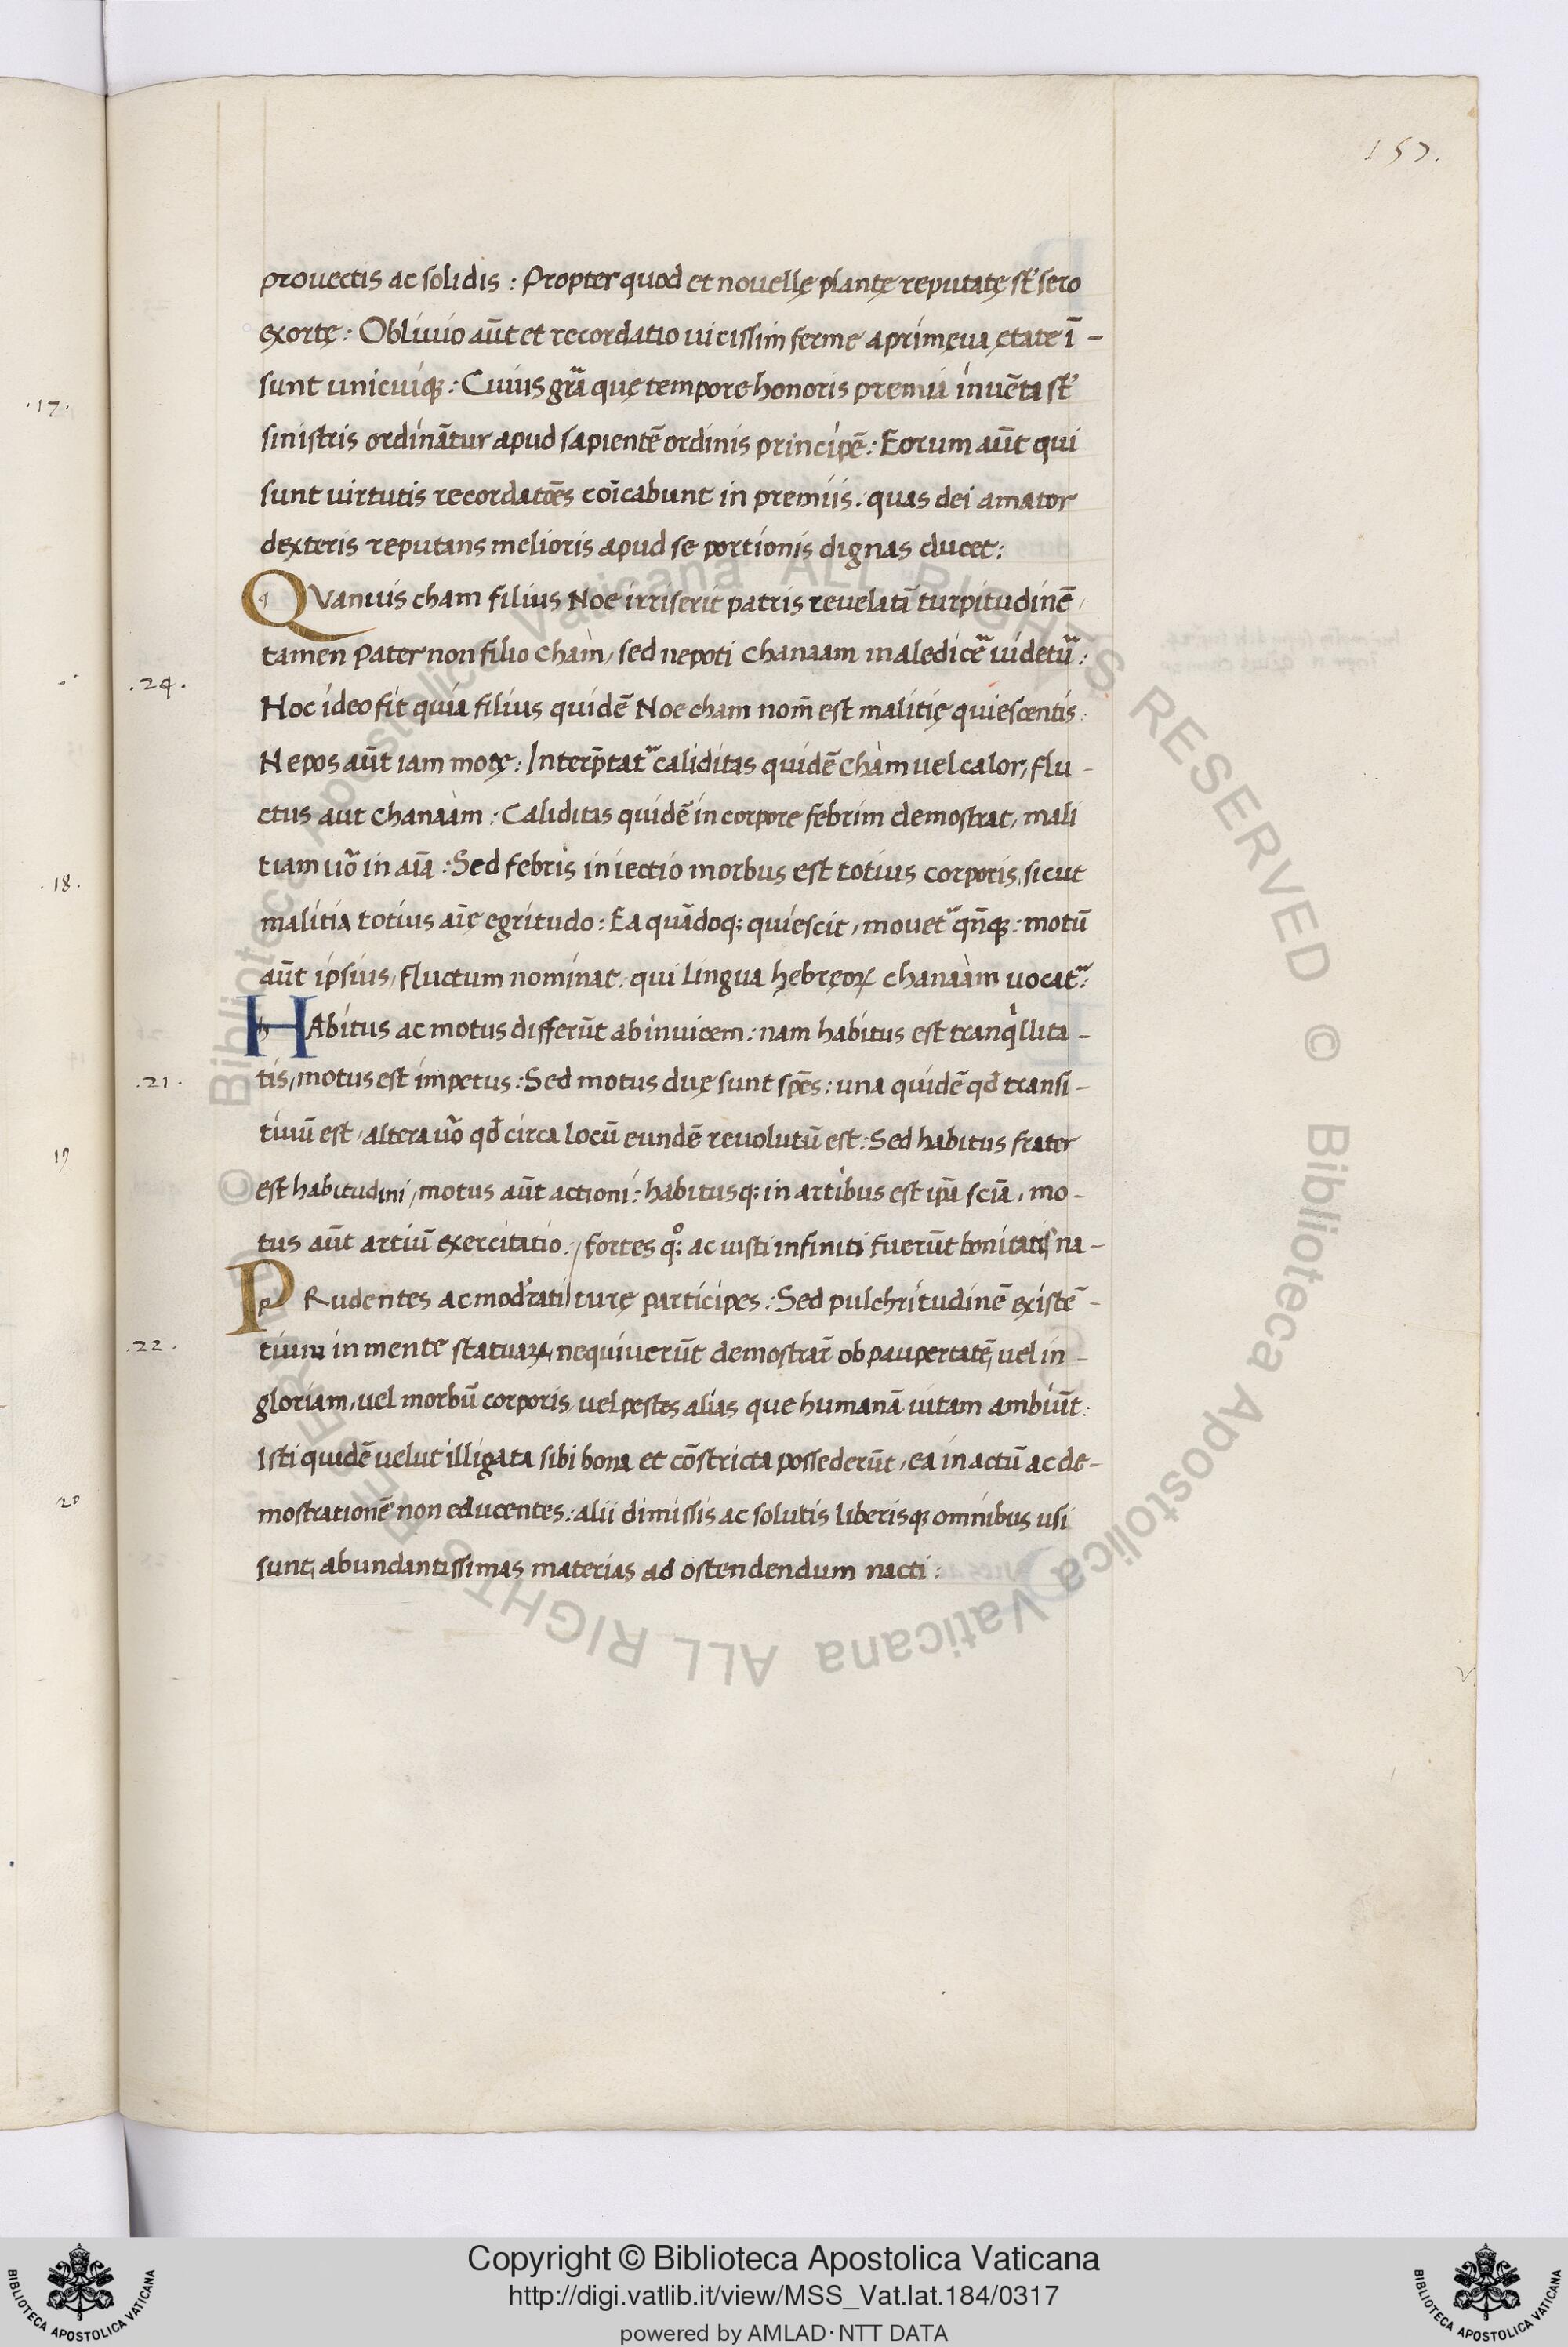 157.
prouectis ac solidis : Propter quod et nouellę plantę reputatę st̃ sero
exortę : Obliuio aũt et recordatio uicissim ferme a primęua ętate ĩ -
sunt unicuiqꝫ : Cuius grã quę tempore honoris premia inuẽta st̃
sinistris ordinãtur apud sapientẽ ordinis principẽ : Eorum aũt qui
sunt uirtutis recordatõẽs cõĩcabunt in premiis . quas dei amator
dexteris reputans melioris apud se portionis dignas ducet :
QVamuis cham filius Noe irriserit patris reuelatã turpitudinẽ ,
tamen pater non filio cham , sed nepoti chanaam maledicẽ uidetũ :
.24.
Hoc ideo fit quia filius quidẽ Noe cham nom̃ est malitię quiescentis .
Nepos aũt iam motę : Interp̃tat̃ caliditas quidẽ cham uel calor , flu -
ctus aut chanaam : Caliditas quidẽ in corpore febrim demostrat , mali
tiam uõ in aĩa : Sed febris iniectio morbus est totius corporis , sicut
malitia totius aĩę egritudo : Ea quãdoqꝫ quiescit , mouet̃ qñqꝫ : motũ
aũt ipsius , fluctum nominat . qui lingua hębręoꝝ chanaam uocat̃ :
HAbitus ac motus differũt ab inuicem : nam habitus est tranq̇llita -
.21.
tis , motus est impetus : Sed motus duę sunt spẽs : una quidẽ qd̃ transi -
tiuũ est , altera uõ qd̃ circa locũ eundẽ reuolutũ est : Sed habitus frater
est habitudini , motus aũt actioni : habitusqꝫ in artibus est ip̃a scĩa , mo -
tus aũt artiũ exercitatio : / fortes qꝫ ac iusti infiniti fuerũt bonitatis na -
PRudentes ac mod̃rati / turę participes : Sed pulchritudinẽ existẽ -
.22.
tium in mente statuaꝝ , nequiuerũt demostrar̃ ob paupertatẽ , uel in -
gloriam , uel morbũ corporis , uel pestes alias que humanã uitam ambiũt :
Isti quidẽ uelut illigata sibi bona et cõstricta possederũt , ea in actũ ac de -
mostrationẽ non educentes : alii dimissis ac solutis liberisqꝫ omnibus usi
sunt , abundantissimas materias ad ostendendum nacti :
.17.
.18.
19
20
© Biblioteca Apostolica Vaticana ALL RIGHTS RESERVED © Biblioteca Apostolica Vaticana ALL RIGHTS RESERVED
Copyright © Biblioteca Apostolica Vaticana
http://digi.vatlib.it/view/MSS_Vat.lat.184/0317
powered by AMLAD·NTT DATA
BIBLIOTECA APOSTOLICA VATICANA
BIBLIOTECA APOSTOLICA VATICANA